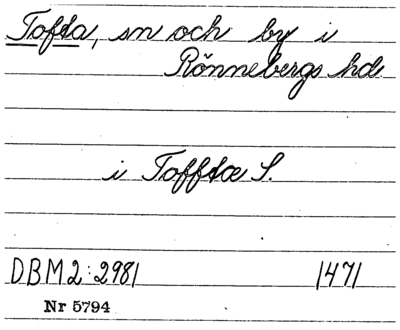 Tofta, sn och by i
Rönnebergs hd.
i Tofftæ S.
DBM 2:2981 1471
Nr 5794